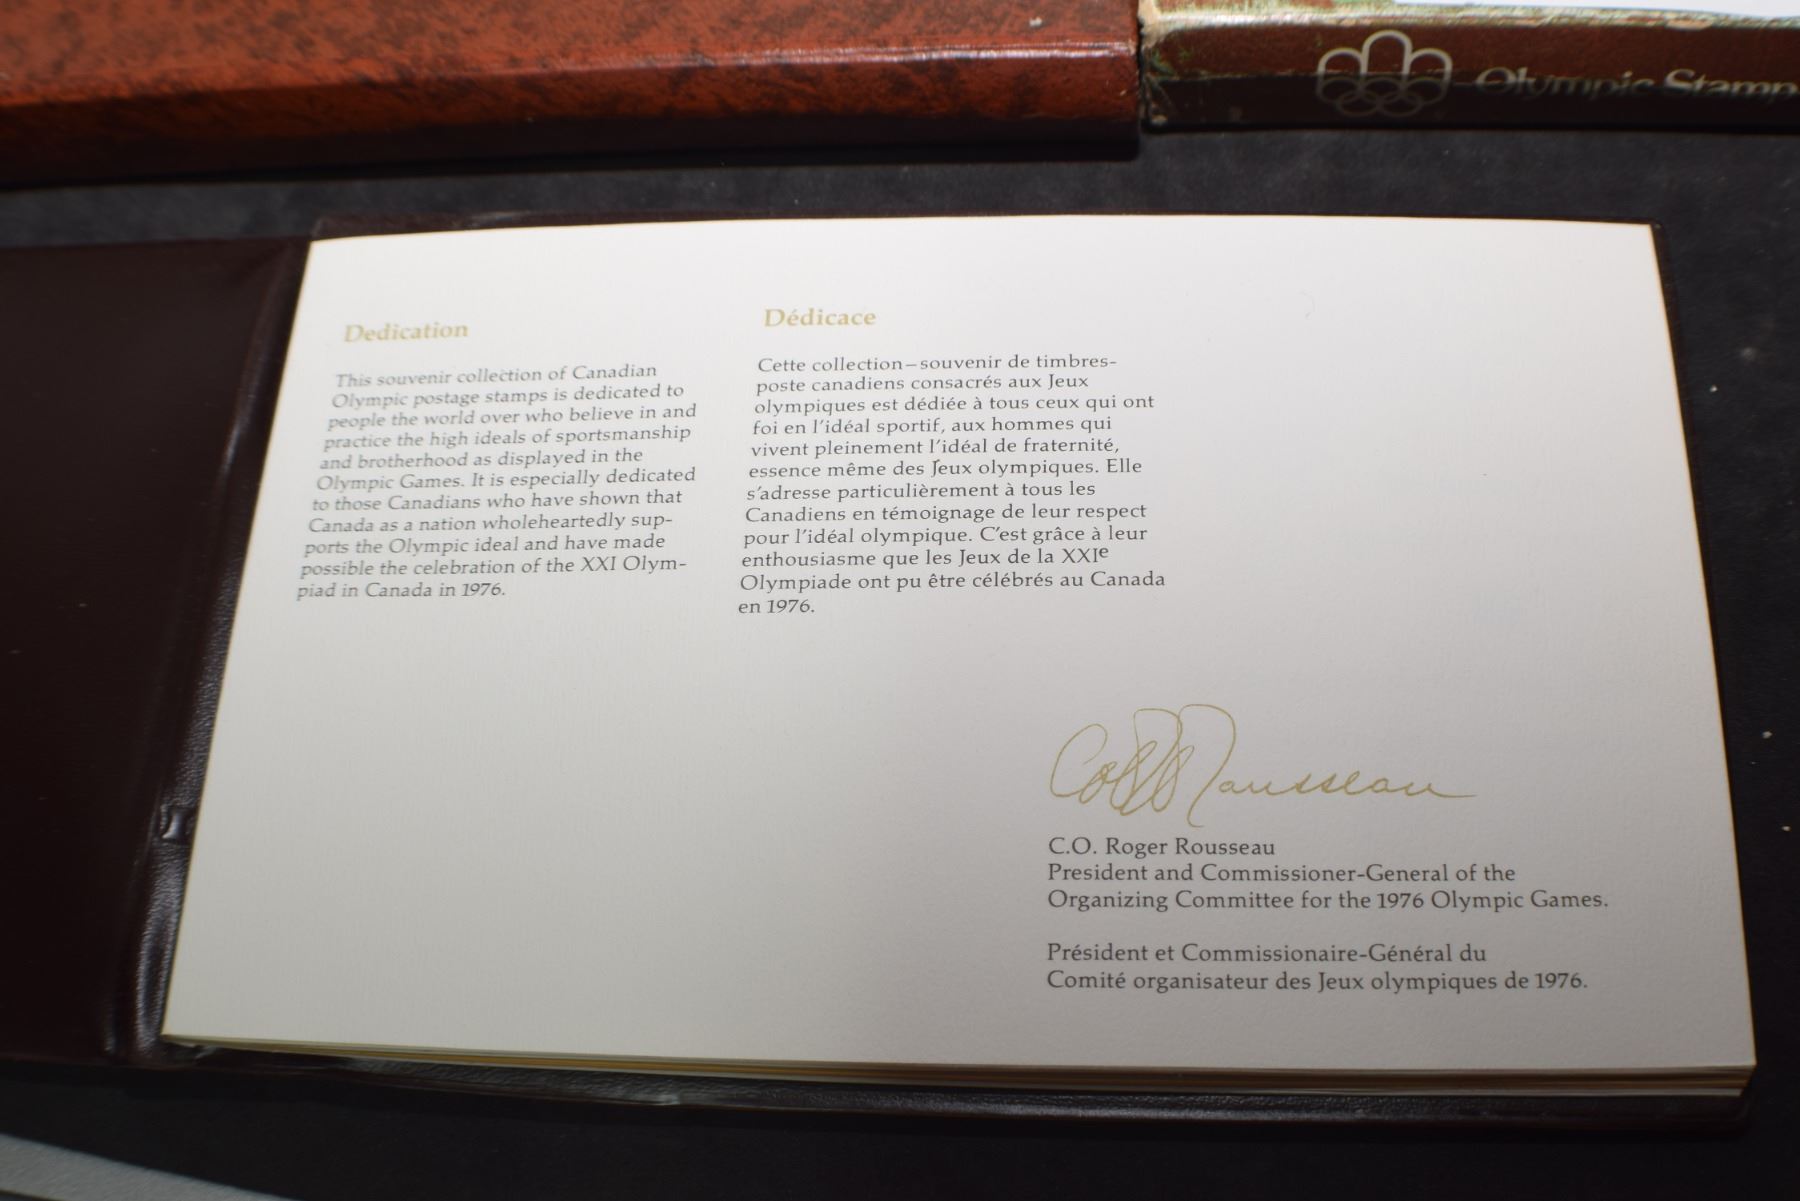 Olympic Stamp
Dedication
This souvenir collection of Canadian
Olympic postage stamps is dedicated to
people the world over who believe in and
practice the high ideals of sportsmanship
and brotherhood as displayed in the
Olympic Games. It is especially dedicated
to those Canadians who have shown that
Canada as a nation wholeheartedly sup-
ports the Olympic ideal and have made
possible the celebration of the XXI Olym-
piad in Canada in 1976.
Dédicace
Cette collection–souvenir de timbres-
poste canadiens consacrés aux Jeux
olympiques est dédiée à tous ceux qui ont
foi en l'idéal sportif, aux hommes qui
vivent pleinement l'idéal de fraternité,
essence même des Jeux olympiques. Elle
s'adresse particulièrement à tous les
Canadiens en témoignage de leur respect
pour l'idéal olympique. C'est grâce à leur
enthousiasme que les Jeux de la XXIe
Olympiade ont pu être célébrés au Canada
en 1976.
Rousseau
C.O. Roger Rousseau
President and Commissioner-General of the
Organizing Committee for the 1976 Olympic Games.
Président et Commissionaire-Général du
Comité organisateur des Jeux olympiques de 1976.